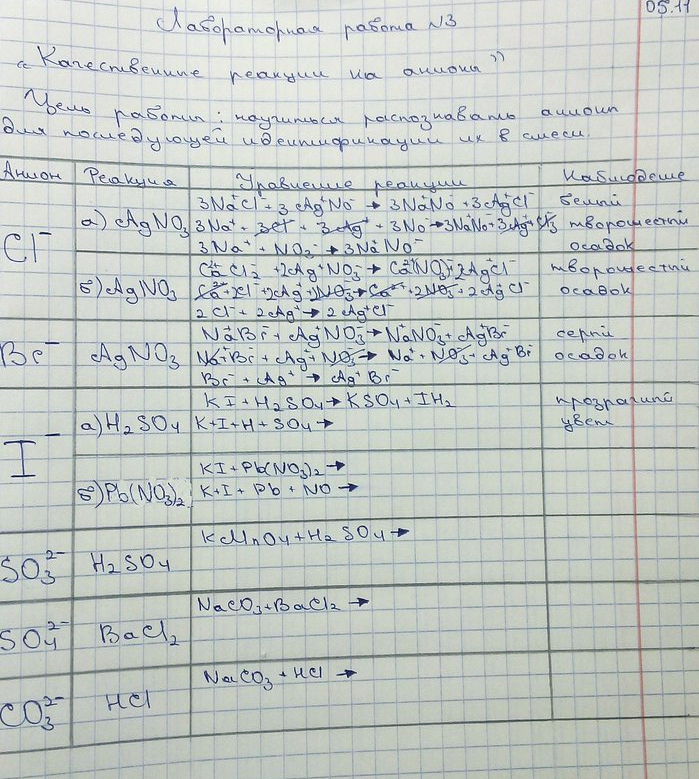 05.11
Лабораторная работа №3
„Качественные реакции на анионы”
Цель работы: научиться распознавать анионы
для последующей идентификации их в смеси.
Анион Реакция Уравнение реакции Наблюдение
Cl⁻
а) AgNO₃
3Na⁺Cl⁻ + 3Ag⁺No⁻ → 3Na⁺No + 3Ag⁺Cl⁻
3Na⁺ + 3Cl⁻ + 3Ag⁺ + 3No⁻ → 3NaNo⁻
3Na⁺ + NO₃⁻ → 3Na⁺No⁻
белый
творожестый
осадок
б) AgNO₃
Ca²⁺Cl₂⁻ + 2Ag⁺NO₃⁻ → Ca²⁺(NO₃)⁻ + 2Ag⁺Cl⁻
Ca²⁺ + 2Cl⁻ + 2Ag⁺ + 2NO₃⁻ → Ca²⁺ + 2NO₃⁻ + 2Ag⁺Cl⁻
2Cl⁻ + 2Ag⁺ → 2Ag⁺Cl⁻
творожестый
осадок
Br⁻ AgNO₃
Na⁺Br⁻ + Ag⁺NO₃⁻ → Na⁺NO₃⁻ + Ag⁺Br⁻
Na⁺ + Br⁻ + Ag⁺ + NO₃⁻ → Na⁺ + NO₃⁻ + Ag⁺Br⁻
Br⁻ + Ag⁺ → Ag⁺Br⁻
серый
осадок
I⁻
а) H₂SO₄
KI + H₂SO₄ → KSO₄ + IH₂
K + I + H + SO₄ →
прозрачный
цвет
б) Pb(NO₃)₂
KI + Pb(NO₃)₂ →
K + I + Pb + NO →
SO₃²⁻ H₂SO₄
KMnO₄ + H₂SO₄ →
SO₄²⁻ BaCl₂
NaCO₃ + BaCl₂ →
CO₃²⁻ HCl
NaCO₃ + HCl →